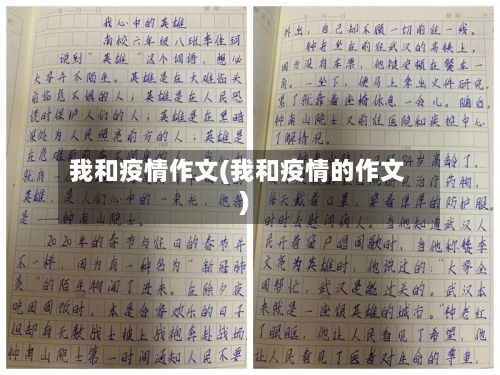 我心中的英雄
南校六年级八班李佳珂
说到"英雄"这个词语，想必
大家并不陌生。英雄是在大难临头
前临危不惧的人；英雄是在人民恐
慌时保护人们的人；英雄是在黑暗
深处为人民照亮前方的人；英雄是
在危难
就自一
英雄，是人们心中的一束光，他
是——钟南山院士。
2020年的春节与往日的春节并
不一样，因为有一种名为"新冠肺
炎"的陌生物闯了进来。在除夕夜
吃团圆饭时，本是合家欢乐的日子
但却有无数战士披上战袍奔赴战场
钟南山院士第一时间通知人民不要
外出，自己却不顾一切前往一线。
钟老坐在前往武汉的高铁上，
因为没有车票，他被安顿在餐车一
角。一坐下，便马上拿出文件研究，
累了就靠着座椅休息一会儿。随后，
钟南山院士又前往医院和疾控中心
了解情况。
84岁高龄了，
治疗药物，
每天戴着口罩，穿着厚厚的防护服，
时时去慰问病人。当他知道武汉人
民开着窗户唱国歌时，当他称赞李
文亮为英雄时，他说过的："大家全
国帮忙，武汉是能过关的。武汉本
来就是一座很英雄的城市。"钟老红
了眼眶，他让人民看见了希望，他
让人民看见了医者对生命的尊重，
我和疫情作文(我和疫情的作文
)